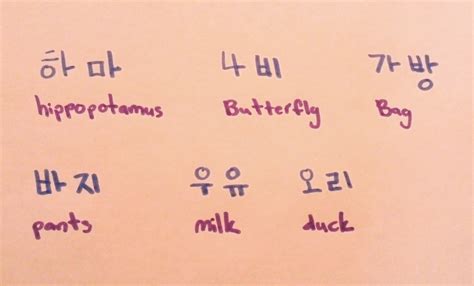 하마 나비 가방
hippopotamus Butterfly Bag
바지 우유 오리
pants milk duck